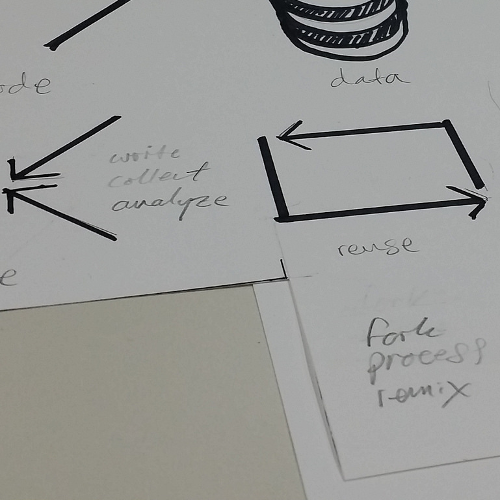 ode
data
write
collect
analyze
reuse
e
fork
process
remix